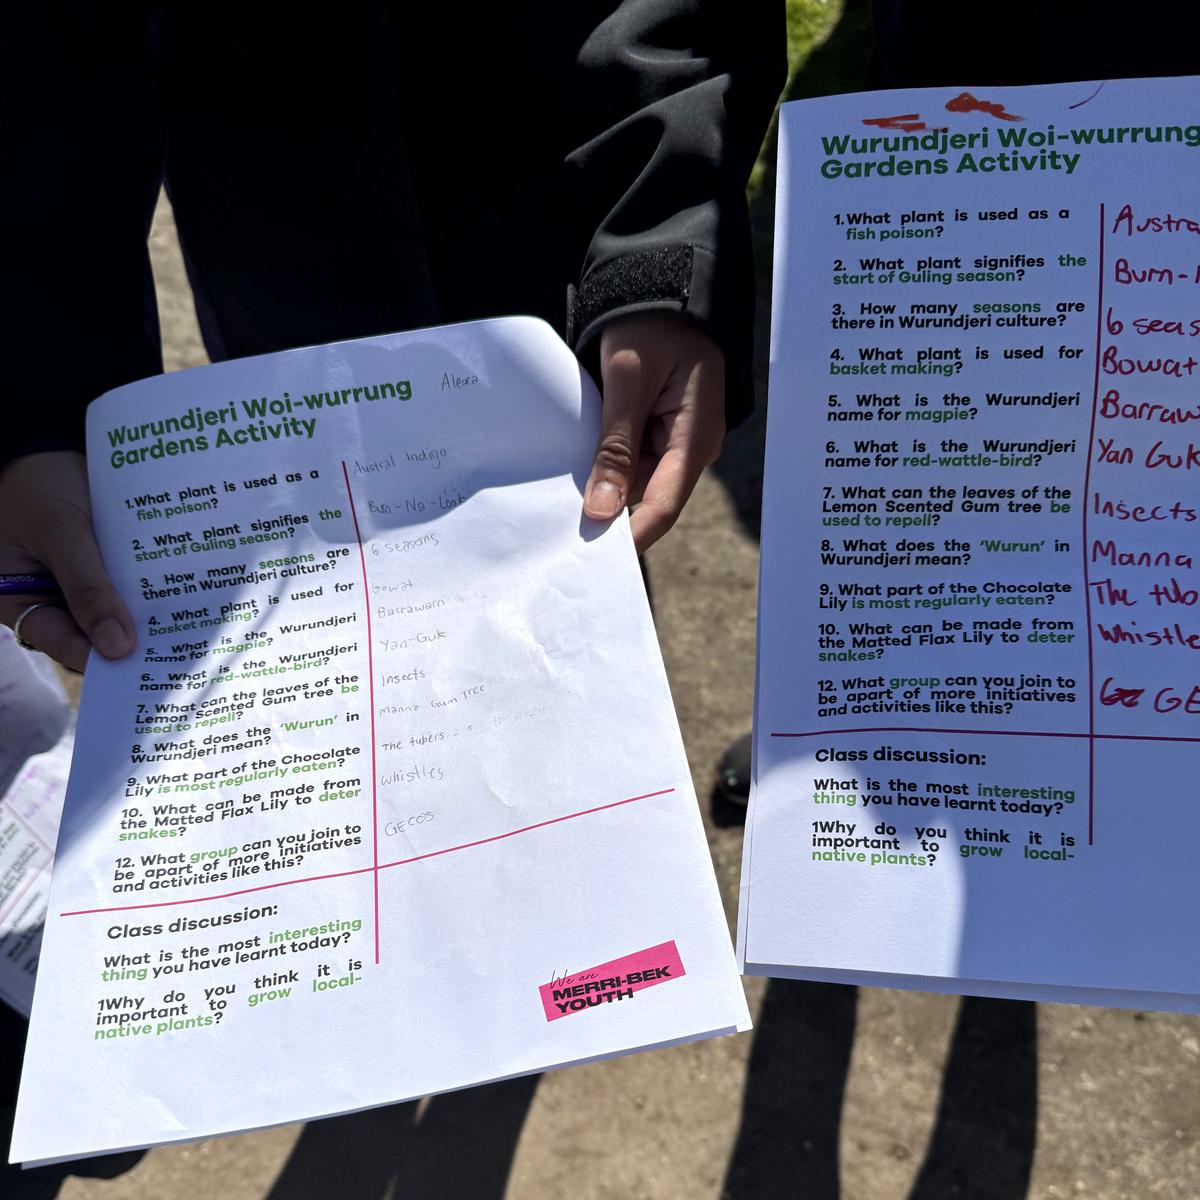 Wurundjeri Woi-wurrung
Gardens Activity
Alexa
1.What plant is used as a
fish poison?
Austral Indigo
2. What plant signifies the
start of Guling season?
3. How many seasons are
there in Wurundjeri culture?
6 seasons
4. What plant is used for
basket making?
Bowat
5. What is the Wurundjeri
name for magpie?
Barrawarn
6. What is the Wurundjeri
name for red-wattle-bird?
Yan-Guk
7. What can the leaves of the
Lemon Scented Gum tree be
used to repell?
Insects
8. What does the 'Wurun' in
Wurundjeri mean?
Manna Gum Tree
9. What part of the Chocolate
Lily is most regularly eaten?
The tubers
10. What can be made from
the Matted Flax Lily to deter
snakes?
whistles
12. What group can you join to
be apart of more initiatives
and activities like this?
GECOS
Class discussion:
What is the most interesting
thing you have learnt today?
1Why do you think it is
important to grow local-
native plants?
We are
MERRI-BEK
YOUTH
Wurundjeri Woi-wurrung
Gardens Activity
1.What plant is used as a
fish poison?
Austra
2. What plant signifies the
start of Guling season?
3. How many seasons are
there in Wurundjeri culture?
6 seas
4. What plant is used for
basket making?
Bowat
5. What is the Wurundjeri
name for magpie?
Barraw
6. What is the Wurundjeri
name for red-wattle-bird?
Yan Guk
7. What can the leaves of the
Lemon Scented Gum tree be
used to repell?
Insects
8. What does the 'Wurun' in
Wurundjeri mean?
Manna
9. What part of the Chocolate
Lily is most regularly eaten?
The tub
10. What can be made from
the Matted Flax Lily to deter
snakes?
whistle
12. What group can you join to
be apart of more initiatives
and activities like this?
GE
Class discussion:
What is the most interesting
thing you have learnt today?
1Why do you think it is
important to grow local-
native plants?